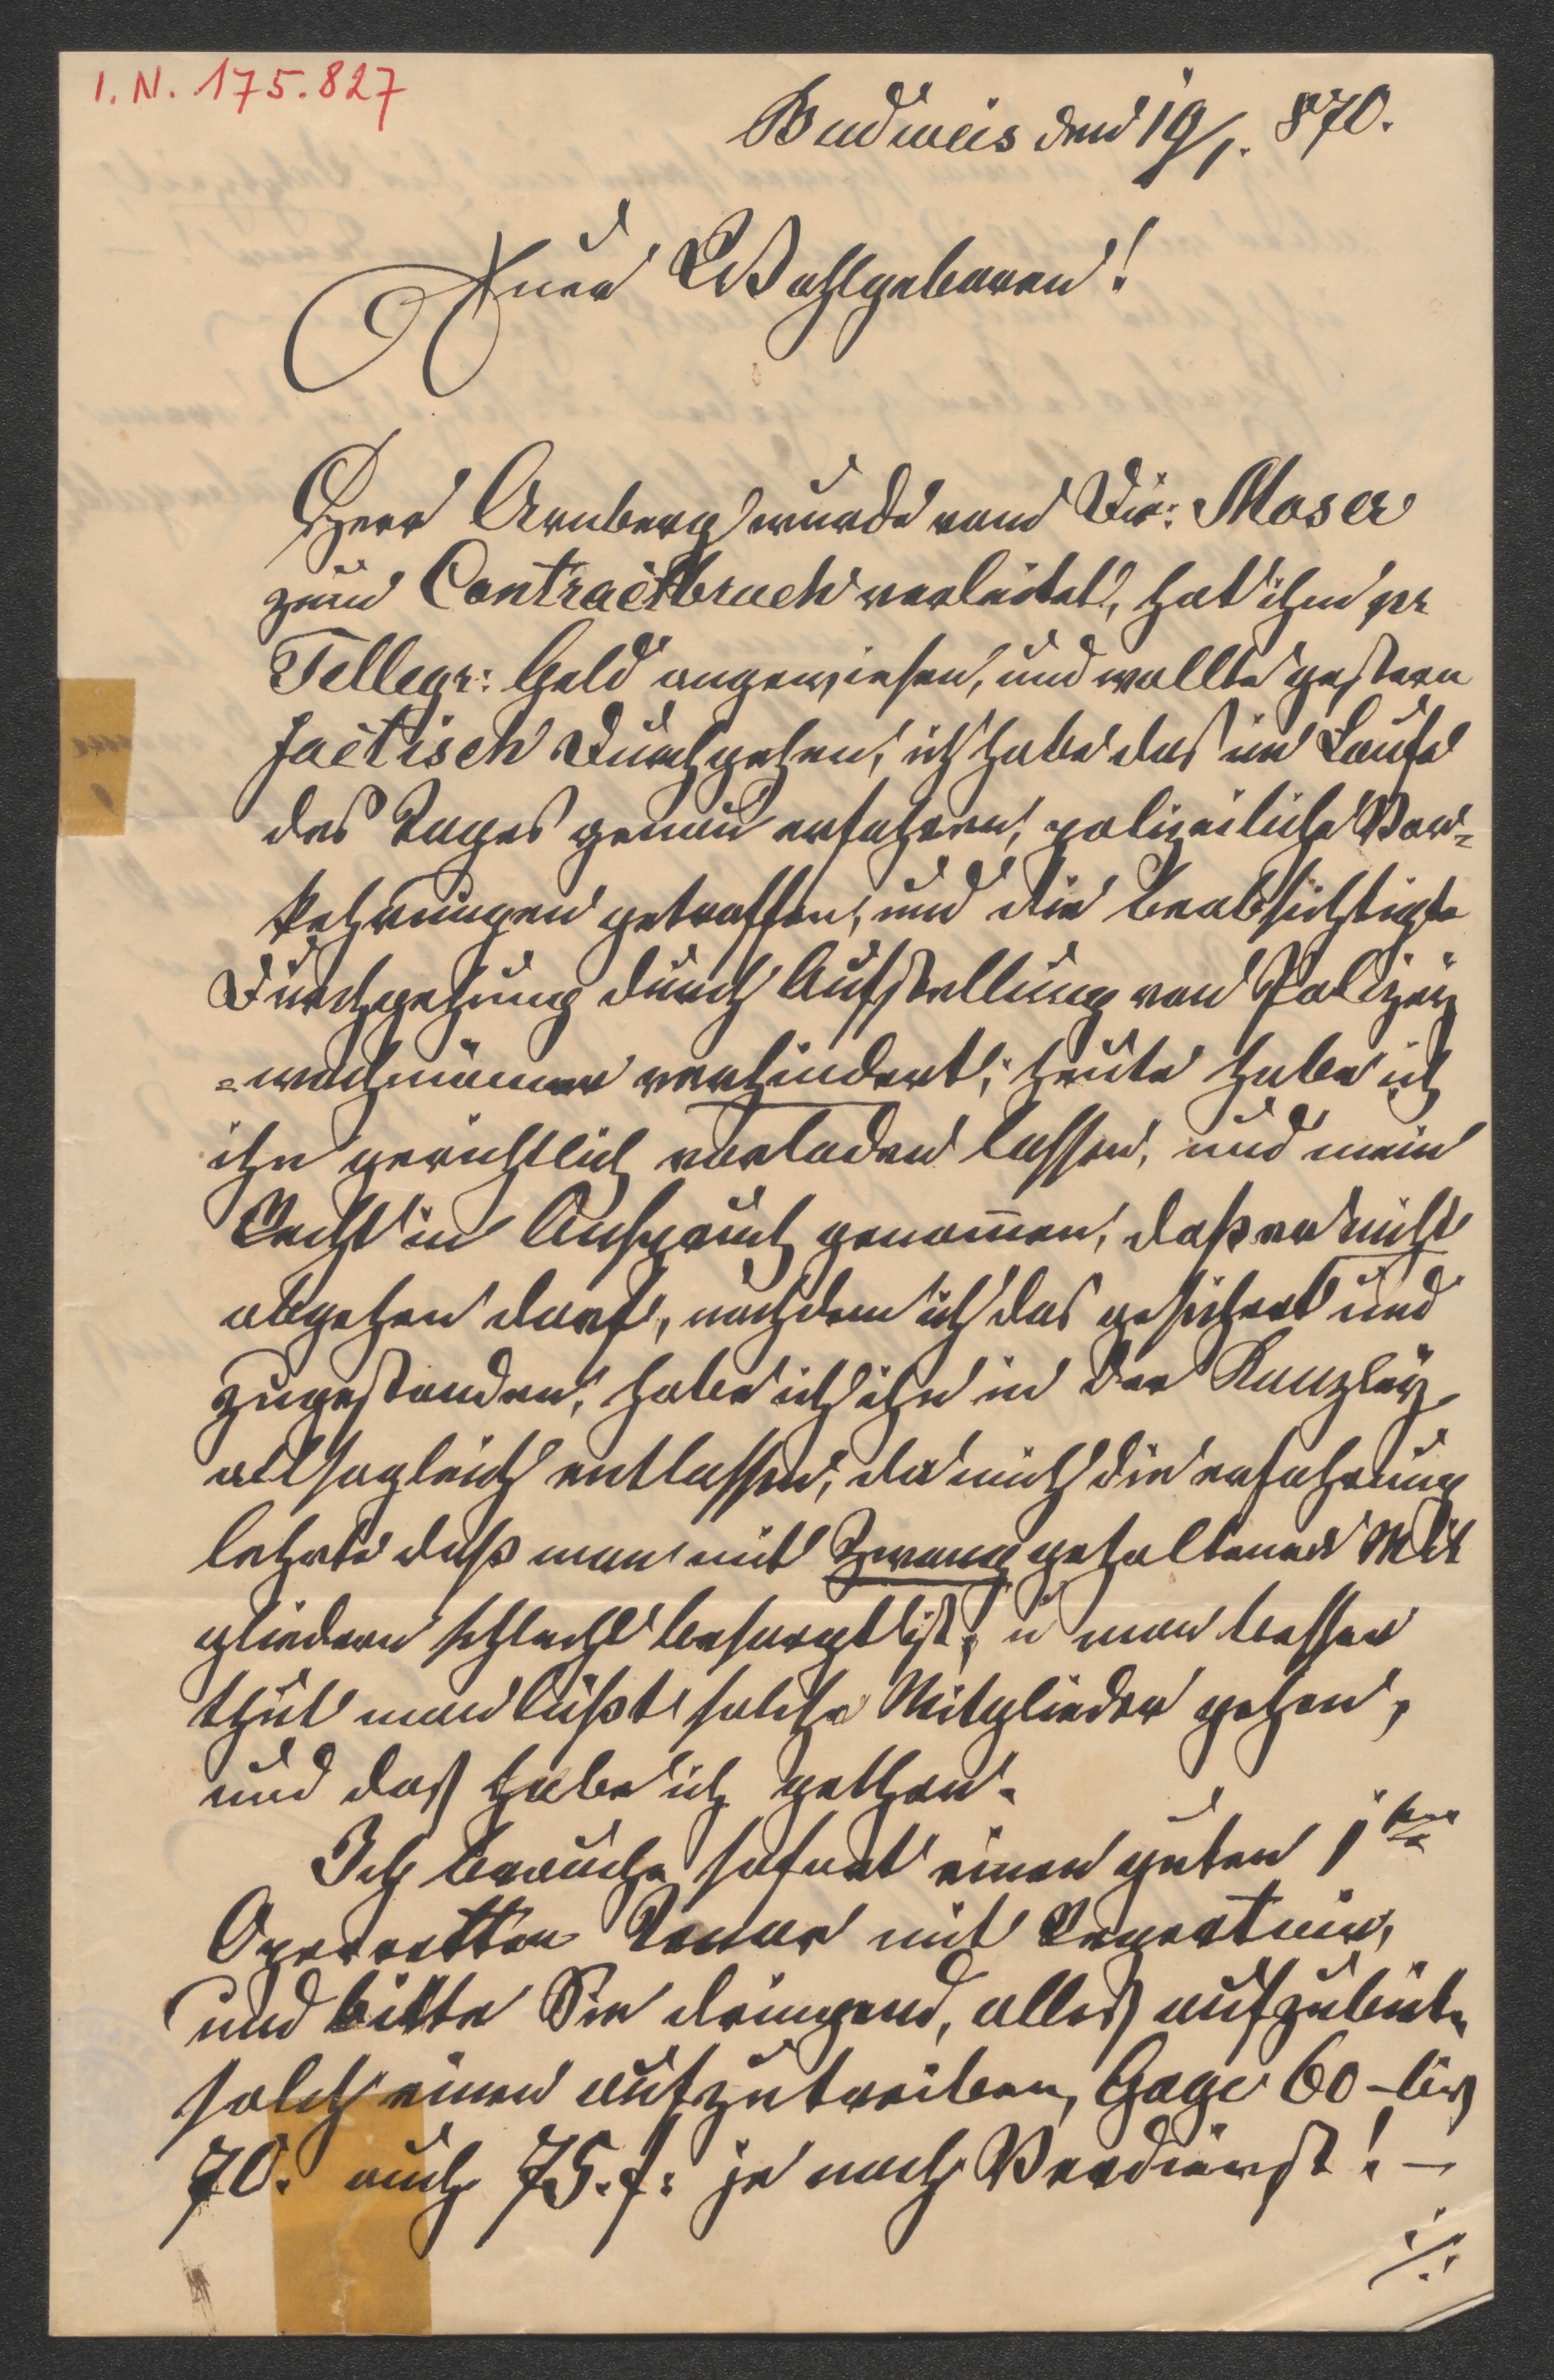 I. N. 175.827
Budweis den 19/1. 870.
Euer Wohlgeboren!
Herr Arnberg wurde vom Dir: Moser
zum Contractbruch verleitet, hat ihm pr
Tellegr: Geld angewiesen, und wollte gestern
factisch Durchgehen, ich habe das im Laufe
des Tages genau erfahren, polizeiliche Vor=
kehrungen getroffen, und die beabsichtigte
Durchgehung durch Aufstellung von Polizey
=wachmänner verhindert; heute habe ich
ihn gerichtlich vorladen lassen, und mein
Recht in Anspruch genom̄en, daß er nicht
abgehen darf, nachdem ich das gesichert und
zugestanden, habe ich ihn in der Kanzley
allsogleich entlassen, da mich die erfahrung
lehrte daß man mit Zwang gehaltenen Mit
gliedern schlecht besorgt ist, u man besser
thut man läßt solche Mitglieder gehen,
und daß habe ich gethan.
Ich brauche sofort einen guten 1ten
Operetten Tenor mit Repertoir,
und bitte Sie dringend, alles aufzubieten
solch einen aufzutreiben, Gage 60 – bis
70. auch 75. f: je nach Verdienst! –
./.